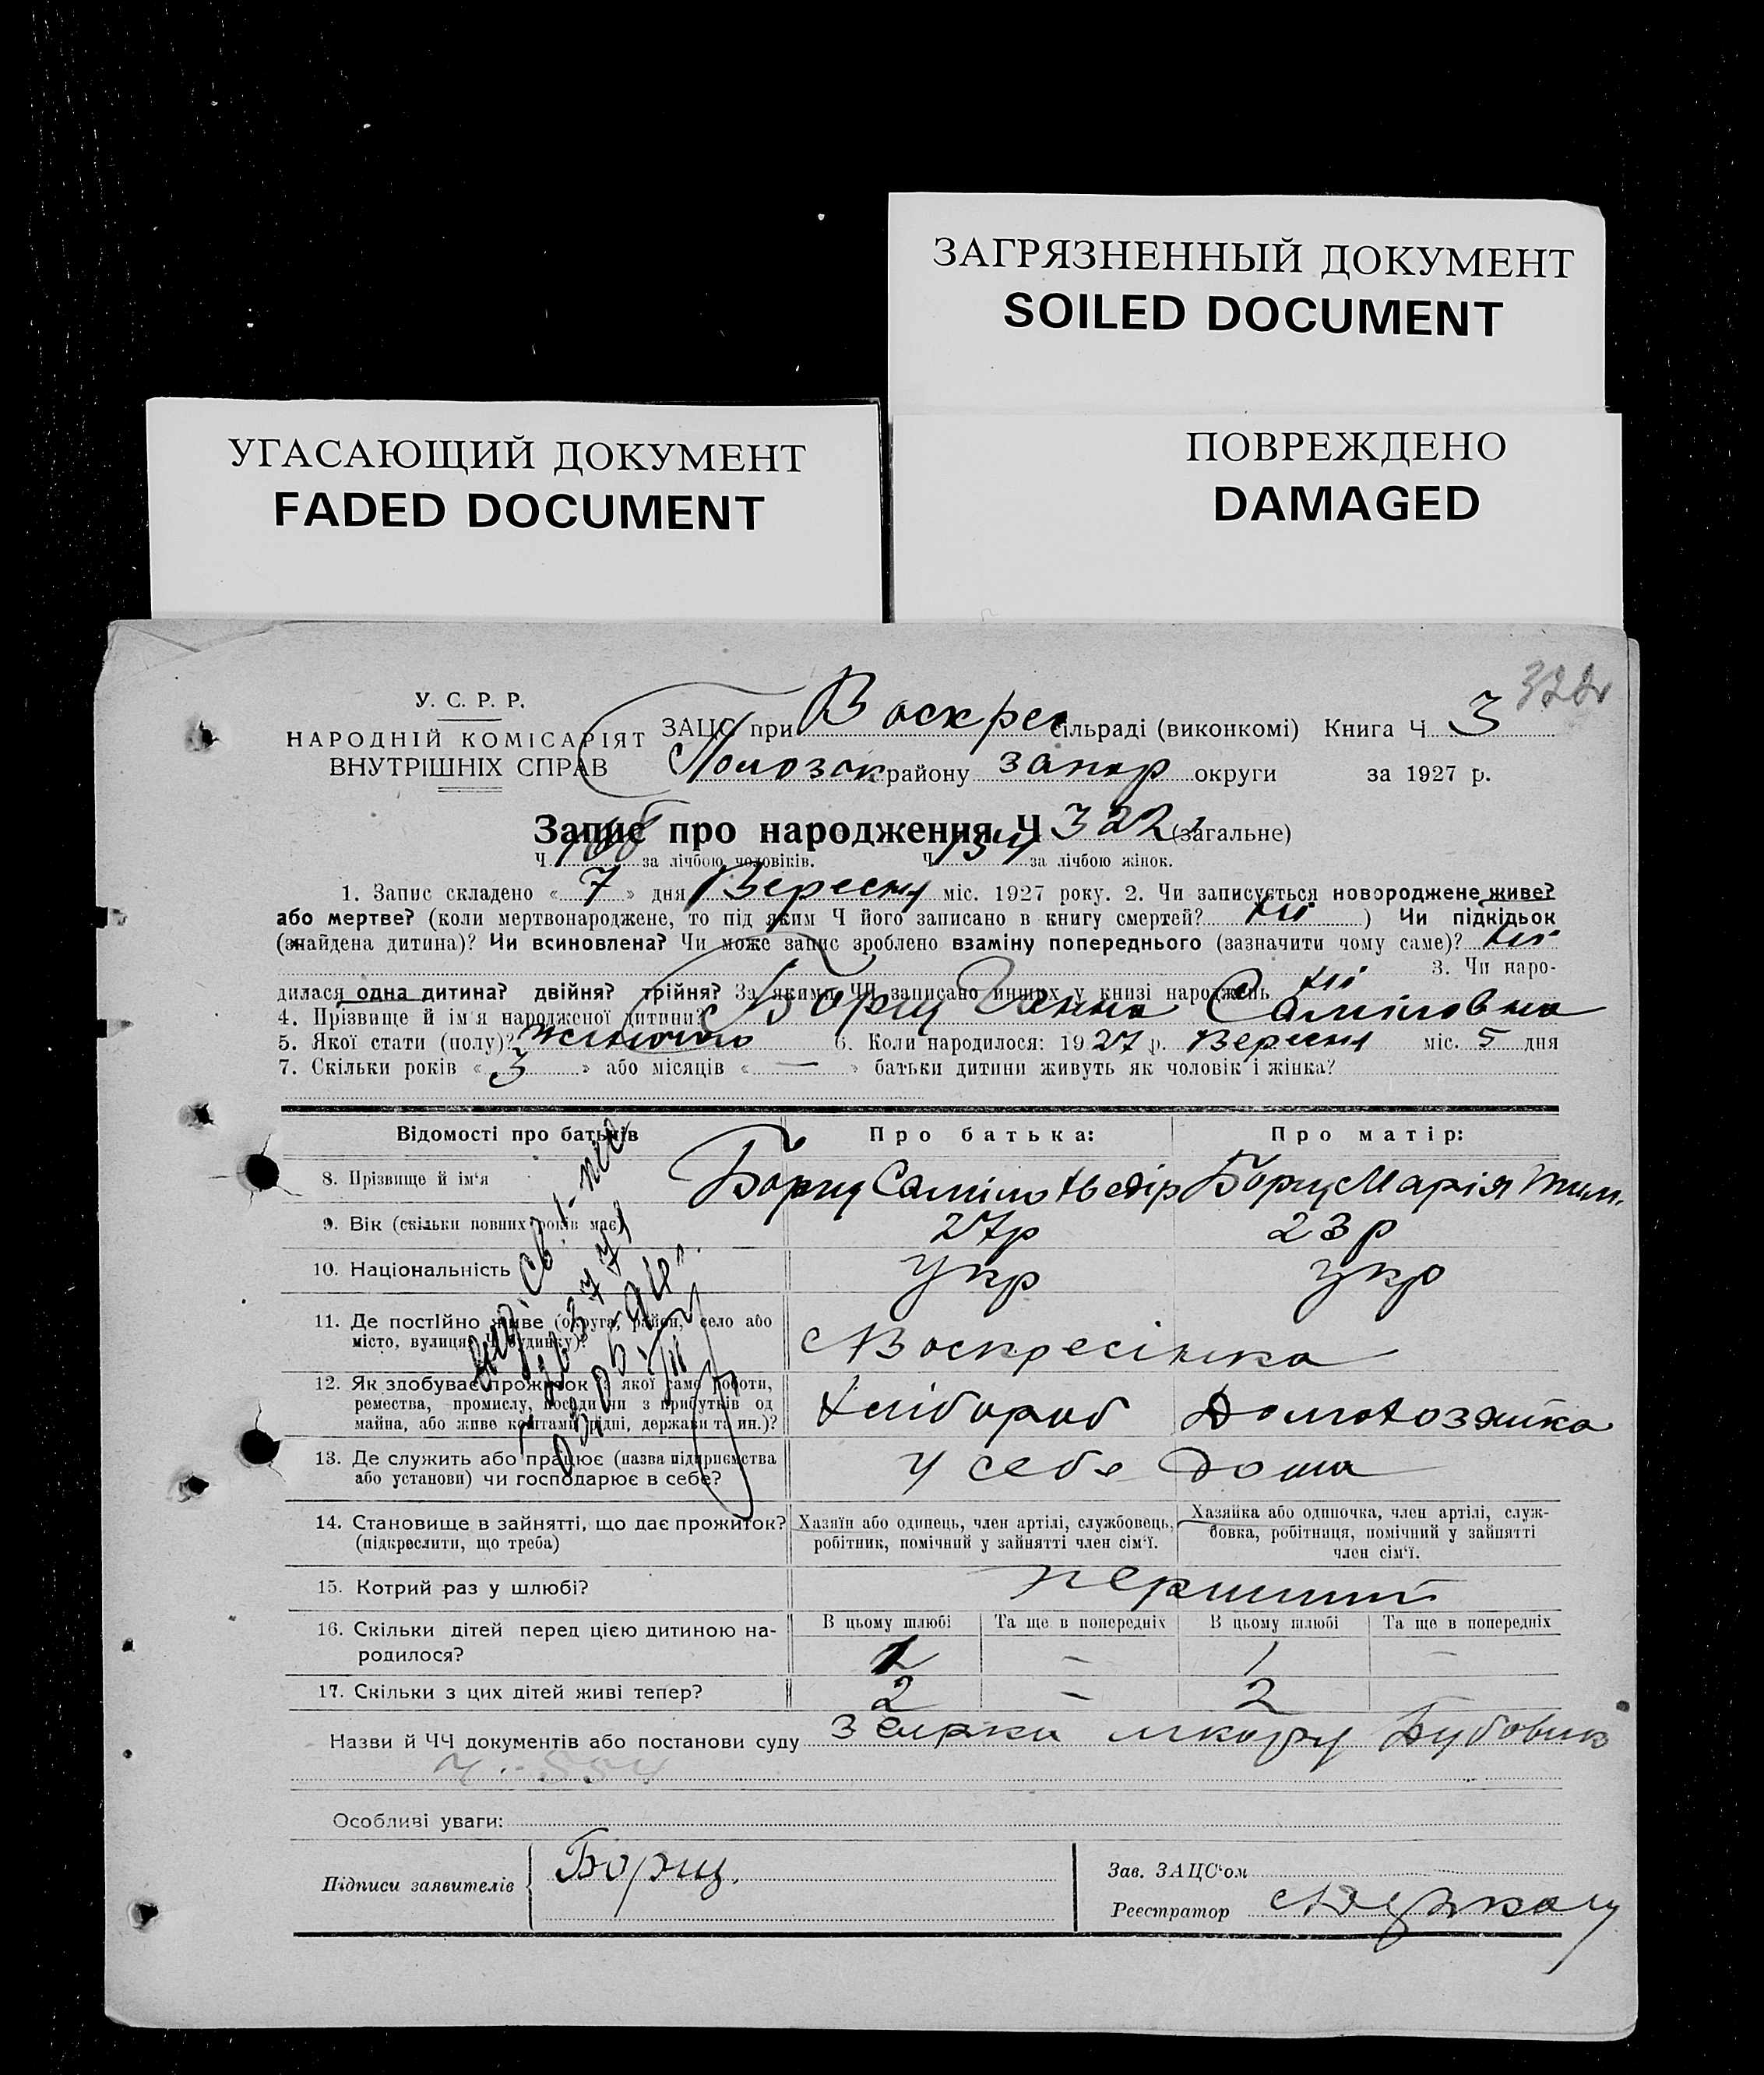 ЗАГРЯЗНЕННЫЙ ДОКУМЕНТ
SOILED DOCUMENT
УГАСАЮЩИЙ ДОКУМЕНТ
FADED DOCUMENT
ПОВРЕЖДЕНО
DAMAGED
У. С. Р. Р.
НАРОДНІЙ КОМІСАРІЯТ
ВНУТРІШНІХ СПРАВ
ЗАЦС при Воскрес сільраді (виконкомі) Книга Ч 3
району запор округи за 1927 р.
Запис про народження Ч 322 (загальне)
Ч 188 за лічбою чоловіків. Ч 134 за лічбою жінок.
1. Запис складено « 7 » дня Вересня міс. 1927 року. 2. Чи записується новороджене живе?
або мертве? (коли мертвонароджене, то під яким Ч його записано в книгу смертей? ні ) Чи підкідьок
(знайдена дитина)? Чи всиновлена? Чи може запис зроблено взаміну попереднього (зазначити чому саме)? ні
3. Чи наро-
дилася одна дитина? двійня? трійня? За якими ЧЧ записано инших у книзі народжень ні
4. Прізвище й ім'я народженої дитини? Борщ Ганна Саміловна
5. Якої стати (полу)? жіночого 6. Коли народилося: 1927 р. Вересня міс. 5 дня
7. Скільки років « 3 » або місяців « — » батьки дитини живуть як чоловік і жінка?
Відомості про батьків Про батька: Про матір:
8. Прізвище й ім'я Борщ Саміло Борщ Марія Тим.
9. Вік (скільки повних років має) 27р 23р
10. Національність Укр Укр
11. Де постійно живе (округа, район, село або
місто, вулиця, Ч будинку)? Воскресінка
12. Як здобуває прожиток з якої саме роботи,
ремества, промислу, посади чи з прибутків од
майна, або живе коштами рідні, держави та ин.)? Хлібороб Домохозяйка
13. Де служить або працює (назва підприємства
або установи) чи господарює в себе? У себе дома
14. Становище в зайнятті, що дає прожиток?
(підкреслити, що треба)
Хазяїн або одинець, член артілі, службовець,
робітник, помічний у зайнятті член сім'ї.
Хазяйка або одиночка, член артілі, служ-
бовка, робітниця, помічний у зайнятті
член сім'ї.
15. Котрий раз у шлюбі? перший
В цьому шлюбі Та ще в попередніх В цьому шлюбі Та ще в попередніх
16. Скільки дітей перед цією дитиною на-
родилося? – 1 –
17. Скільки з цих дітей живі тепер? 2 – 2
Назви й ЧЧ документів або постанови суду
Ч. 554
Особливі уваги:
Підписи заявителів Борщ.
Зав. ЗАЦС'ом
Реєстратор